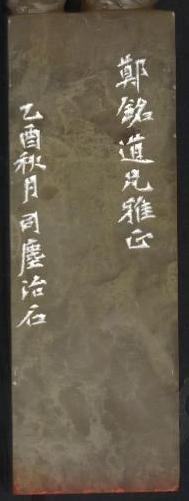 鄭銘道兄雅正
乙酉秋月同塵治石